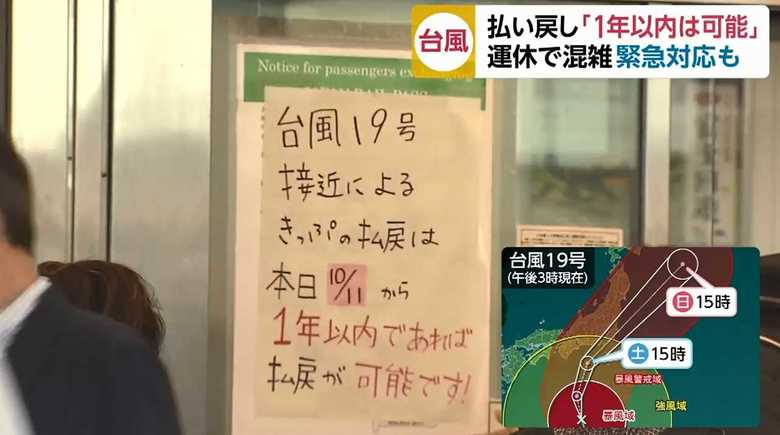 台風
払い戻し「1年以内は可能」
運休で混雑 緊急対応も
Notice for passengers exchanging
JAPAN RAIL PASS
台風19号
接近による
きっぷの払戻は
本日10/11から
1年以内であれば
払戻が可能です!
台風19号
(午後3時現在)
日 15時
土 15時
暴風警戒域
強風域
暴風域